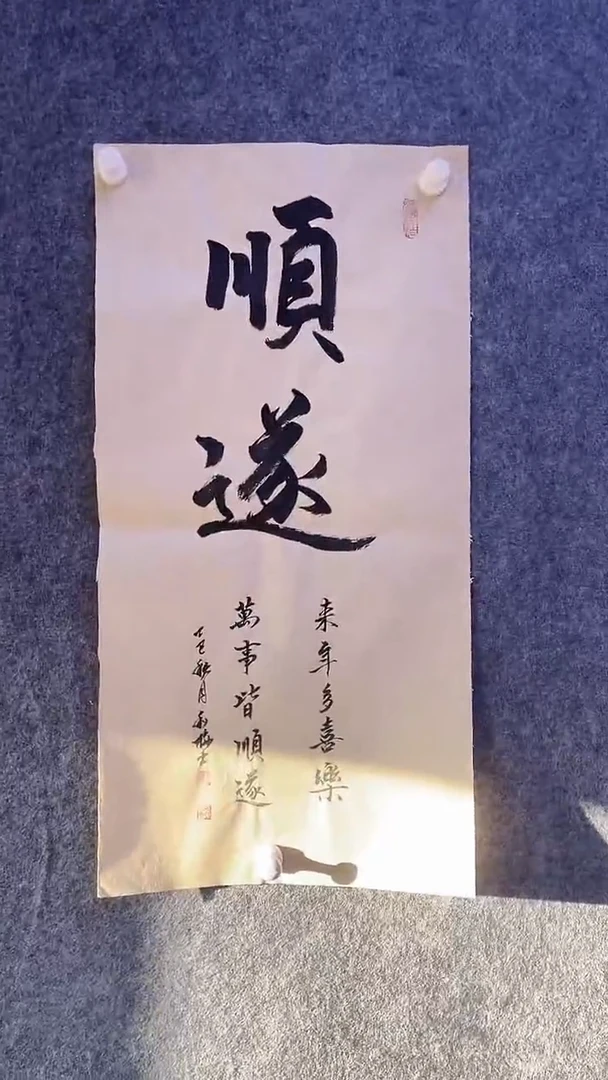 順遂
来年多喜樂
萬事皆順遂
乙巳秋月